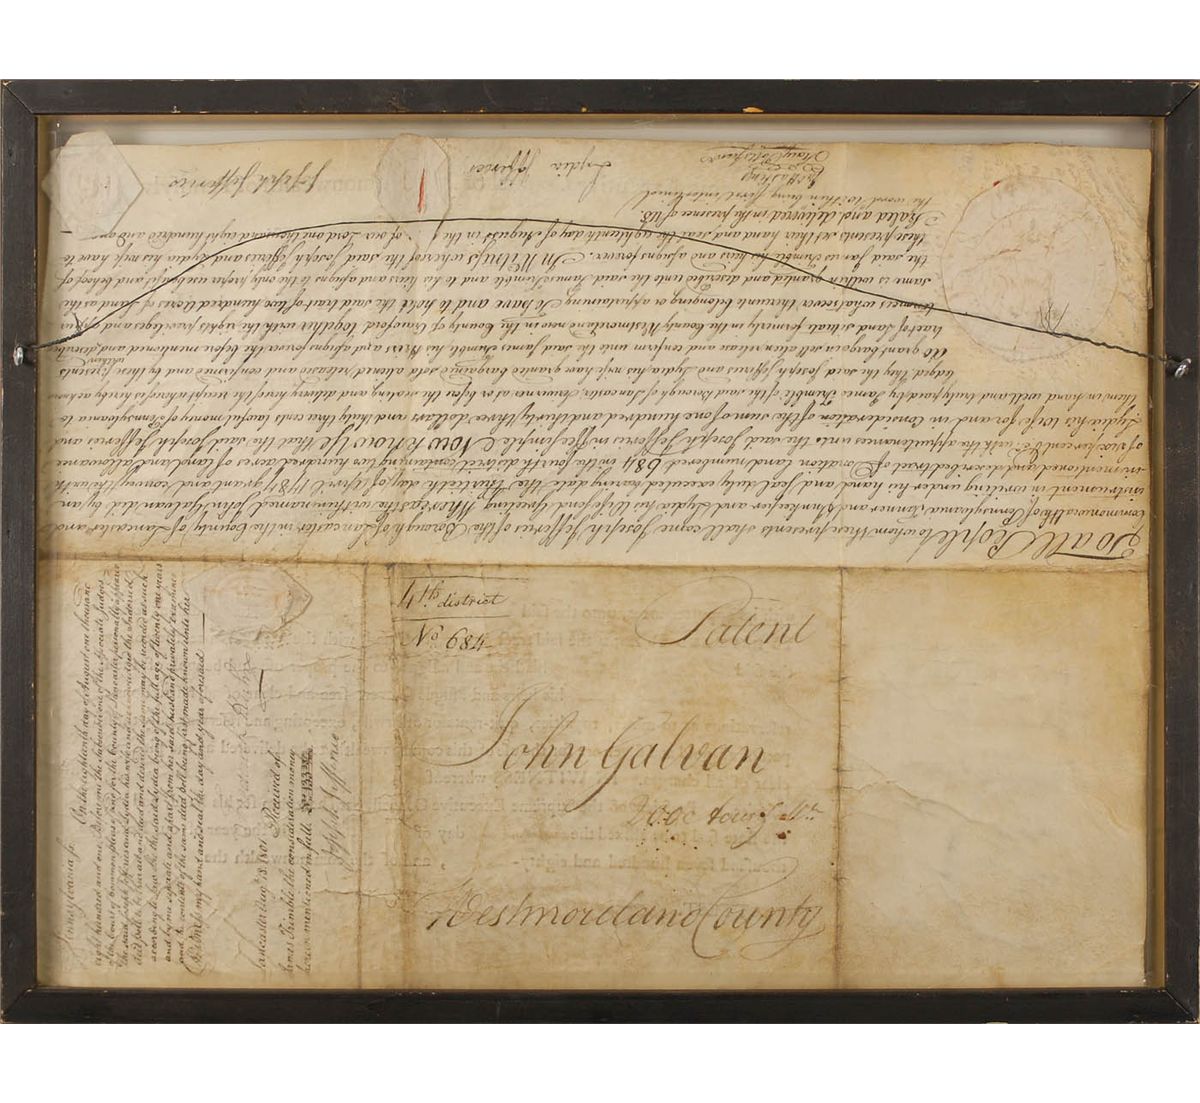 4th district
No 684
Patent
John Galvan
200 acres
Westmoreland County
To all People to whom these presents shall come Joseph Jefferies of the Borough of Lancaster in the County of Lancaster and
Commonwealth of Pennsylvania Tanner and Lydia his Wife send Greeting Whereas the within named John Galvan did by an
instrument in writing under his hand and seal duly executed bearing date the thirtieth day of April 1784 grant and convey the with
in mentioned and described tract of Donation Land numbered 684 in the fourth district containing two hundred acres of Land and allowance
of six per cent &c. with the appurtenances unto the said Joseph Jefferies in fee simple Now know Ye that the said Joseph Jefferies and
Lydia his Wife for and in Consideration of the sum of one hundred and thirty three dollars and thirty three cents lawful money of Pennsylvania to
them in hand well and truly paid by James Trimble of the said Borough of Lancaster, at or before the sealing and delivery hereof the receipt whereof is hereby acknow
ledged they the said Joseph Jefferies and Lydia his wife have granted bargained sold aliened released and confirmed and by these presents
do grant bargain sell alien release and confirm unto the said James Trimble his Heirs and assigns forever the before mentioned and described
within
tract of Land situate formerly in the County of Westmoreland now in the County of Crawford together with the rights privileges and appur
tenances whatsoever thereunto belonging or appertaining To have and to hold the said tract of two hundred acres of land as the
same is within granted and described unto the said James Trimble and to his heirs and assigns to the only proper use benefit and behoof of
the said James Trimble his heirs and assigns forever. In Witness whereof the said Joseph Jefferies and Lydia his wife have to
these presents set their hand and seal the eighteenth day of August in the of our Lord one thousand eight hundred and
Sealed and delivered in the presence of Us.
the word within being first interlined
Lydia Jefferies
Joseph Jefferies
Pennsylvania ss.
On the eighteenth day of August one thousand
eight hundred and one Before me the subscriber one of the Associate Judges
of the Court of Common pleas of and for the County of Lancaster personally appeared
the said Joseph Jefferies and Lydia his wife and acknowledged the Indorsed
deed poll to be their act and deed and desired the same may be recorded as such
according to Law She the said Lydia being of the full age of twenty one years
and by me separate and apart from her said husband privately examined
and the contents of the same deed poll being first made known unto her
Witness my hand and seal the day and year aforesaid
Lancaster Augt 18. 1801. Received of
James Trimble the consideration money
herein mentioned in full.
Joseph Jefferies